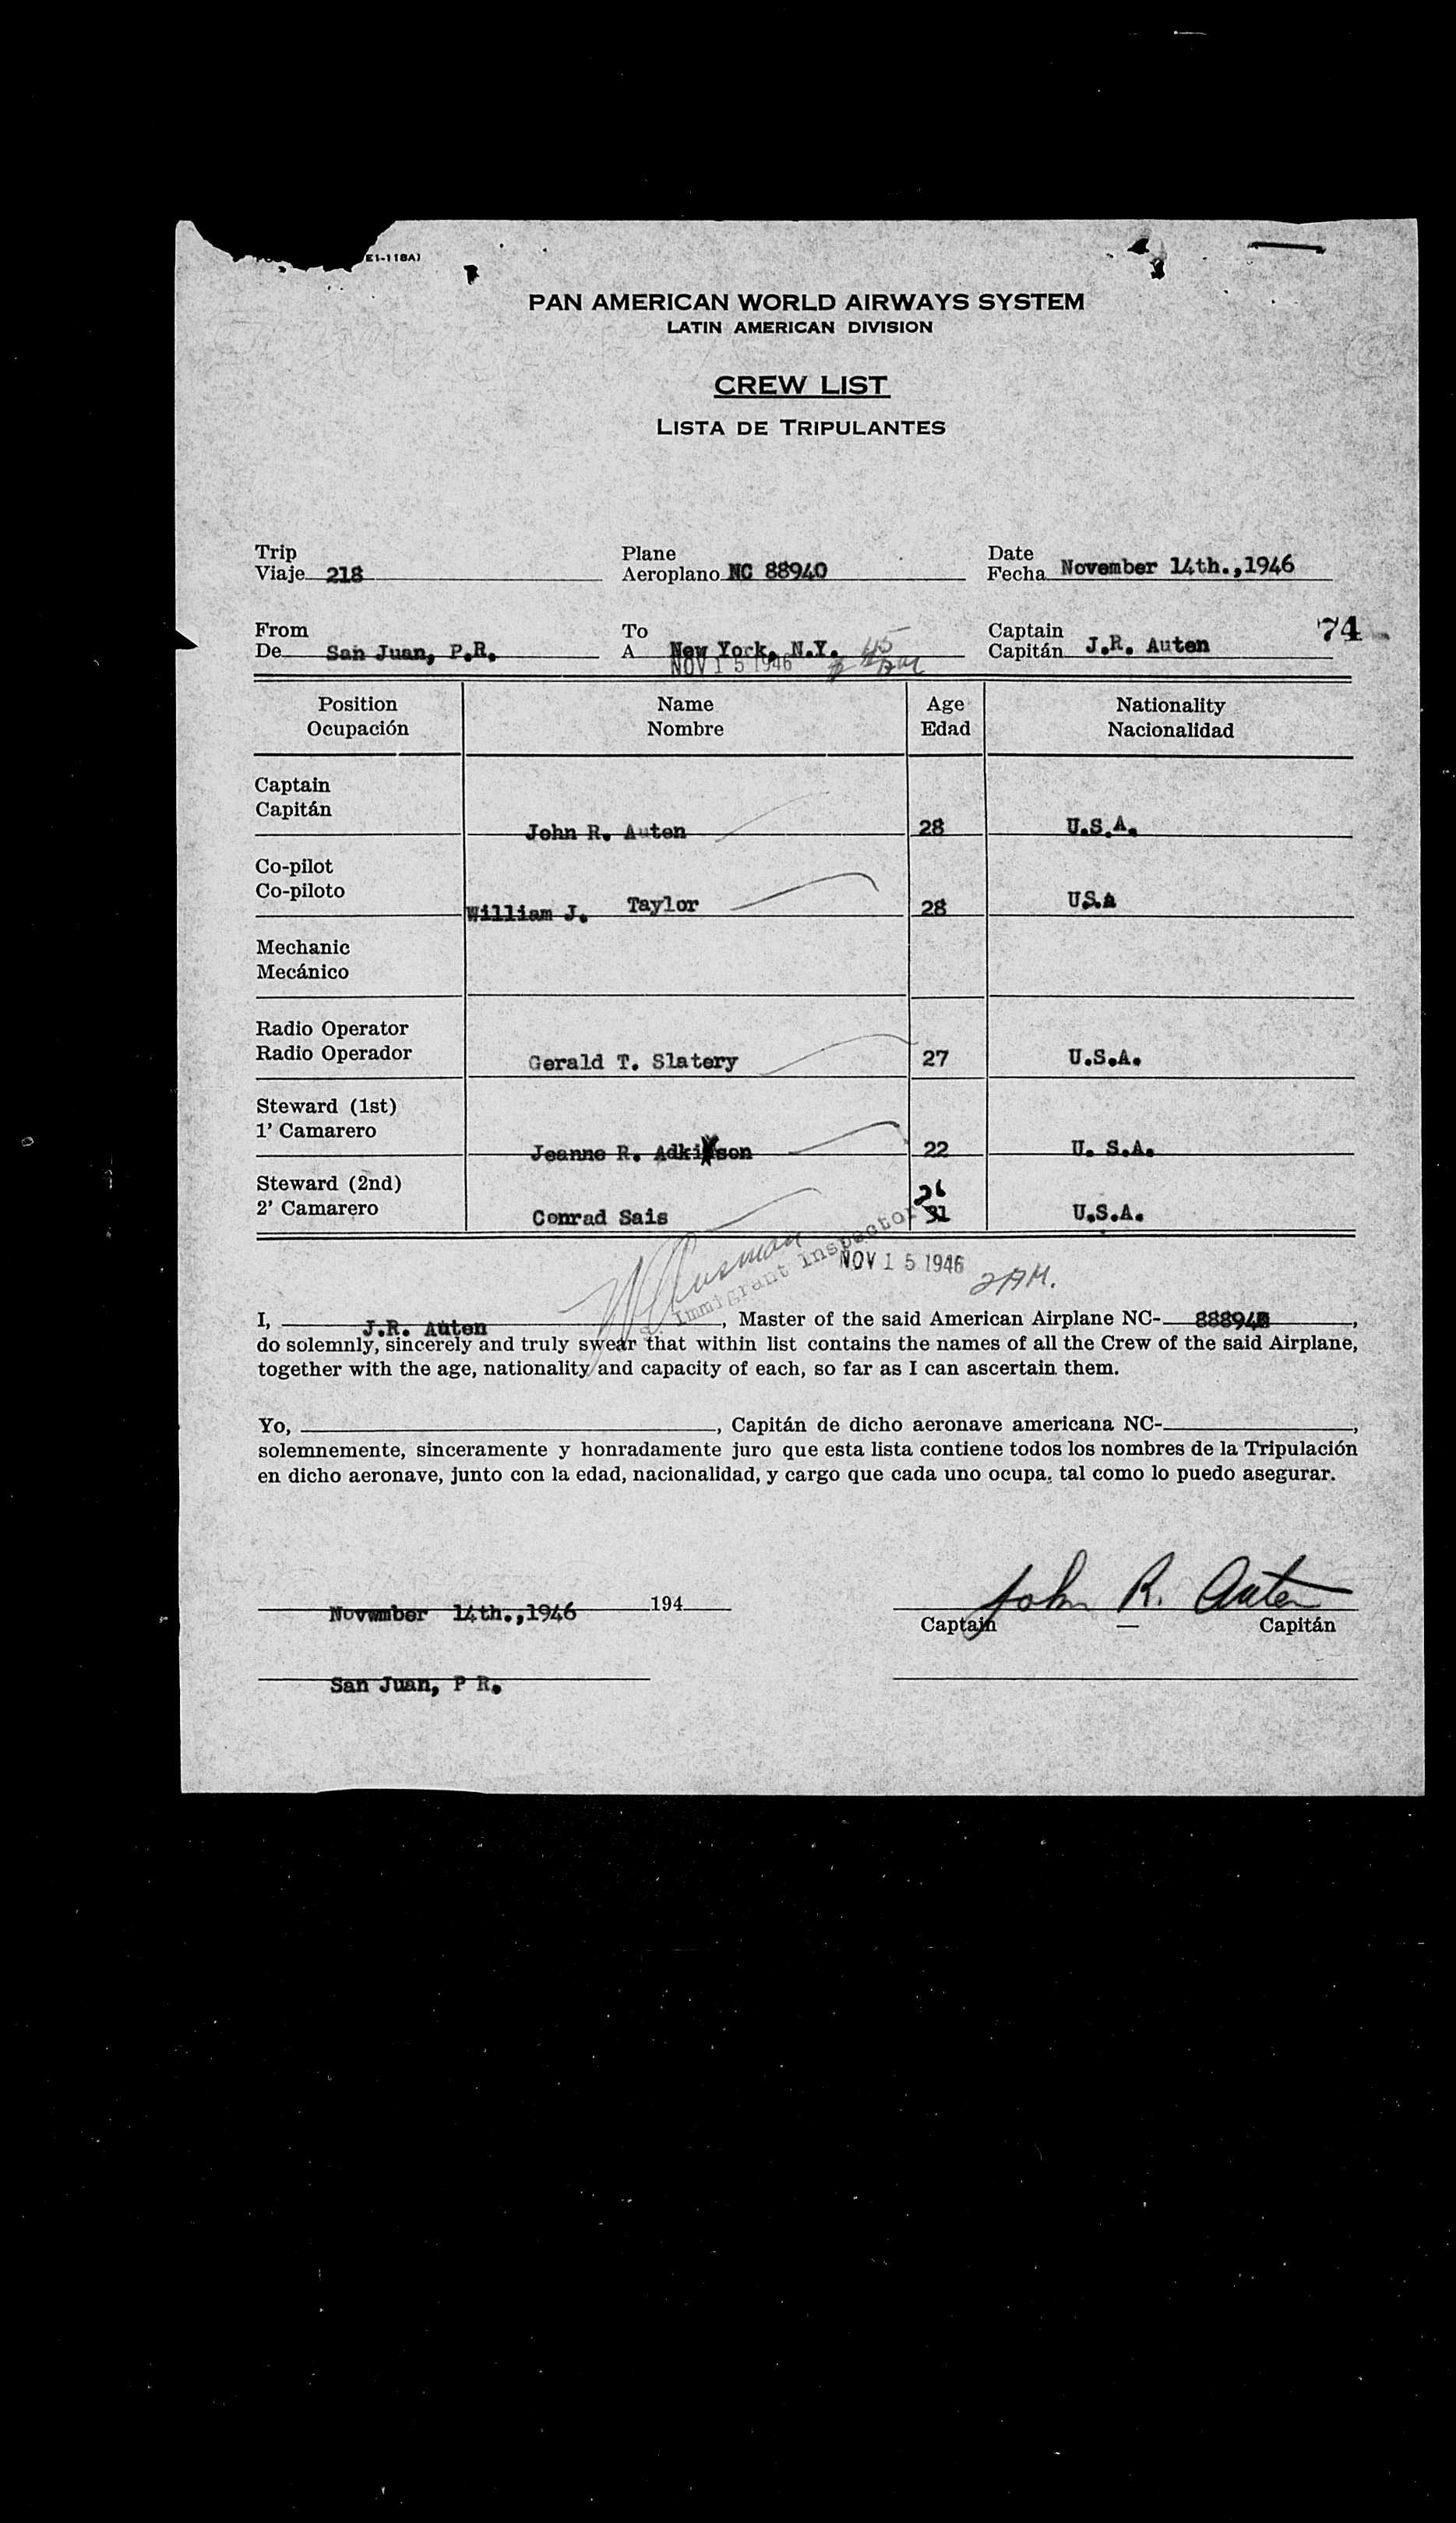 E1-118A)
PAN AMERICAN WORLD AIRWAYS SYSTEM
LATIN AMERICAN DIVISION
CREW LIST
LISTA DE TRIPULANTES
Trip Plane Date
Viaje 218 Aeroplano NC 88940 Fecha November 14th.,1946
From To Captain 74
De San Juan, P.R. A New York, N.Y. 45 Capitán J.R. Auten
NOV 15 1946
Position Name Age Nationality
Ocupación Nombre Edad Nacionalidad
Captain
Capitán
John R. Auten 28 U.S.A.
Co-pilot
Co-piloto
William J. Taylor 28 U.S.A
Mechanic
Mecánico
Radio Operator
Radio Operador Gerald T. Slatery 27 U.S.A.
Steward (1st)
1' Camarero
Jeanne R. Adkisson 22 U. S.A.
Steward (2nd) 26
2' Camarero Conrad Sais 31 U.S.A.
Immigrant Inspector
NOV 15 1946 2 AM.
I, J.R. Auten, Master of the said American Airplane NC- 88894,
do solemnly, sincerely and truly swear that within list contains the names of all the Crew of the said Airplane,
together with the age, nationality and capacity of each, so far as I can ascertain them.
Yo, , Capitán de dicho aeronave americana NC- ,
solemnemente, sinceramente y honradamente juro que esta lista contiene todos los nombres de la Tripulación
en dicho aeronave, junto con la edad, nacionalidad, y cargo que cada uno ocupa, tal como lo puedo asegurar.
Novwmber 14th.,1946 194 John R. Auten
Captain — Capitán
San Juan, P R.